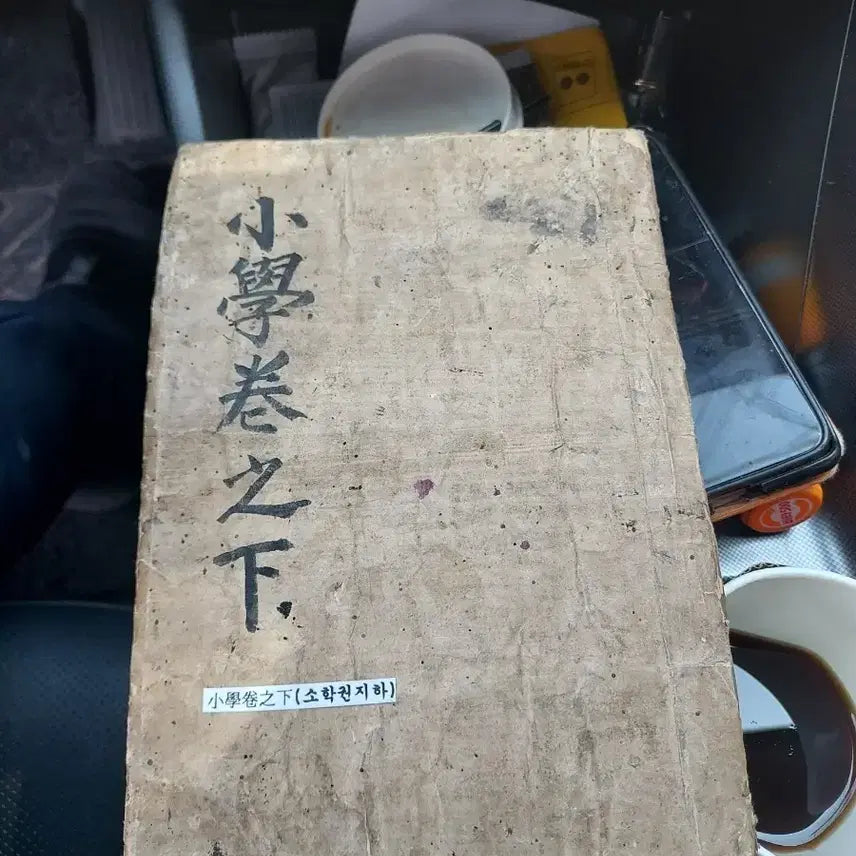 小學卷之下
小學卷之下(소학권지하)